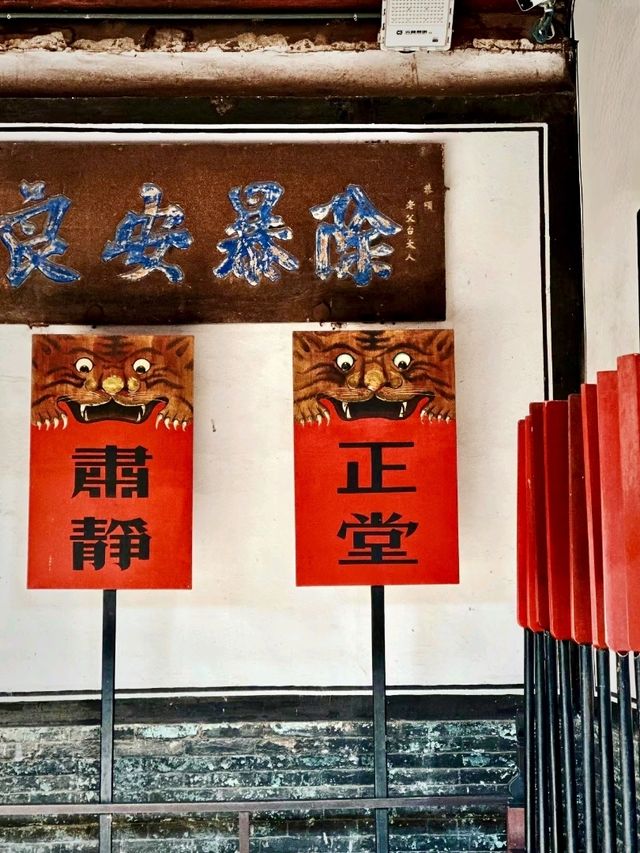 恭頌
老父台大人
除暴安良
正堂
肅靜